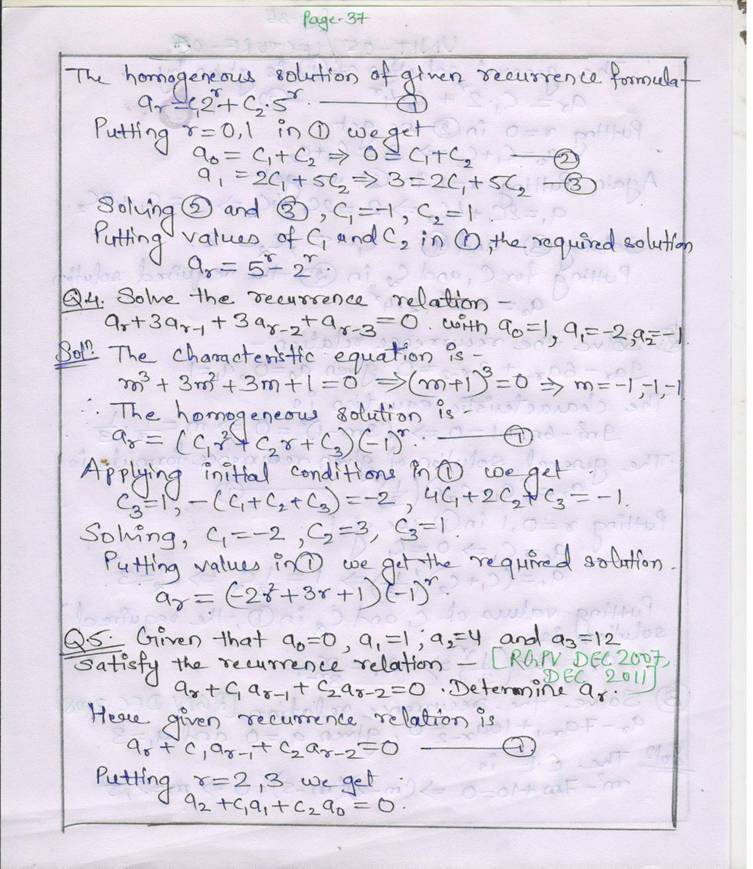 Page-37
The homogeneous solution of given recurrence formula-
aᵣ = C₁2ʳ + C₂·5ʳ. ——— ①
Putting r=0,1 in ① we get
a₀ = C₁+C₂ ⇒ 0 = C₁+C₂ — ②
a₁ = 2C₁+5C₂ ⇒ 3 = 2C₁+5C₂ — ③
Solving ② and ③, C₁=-1, C₂=1
Putting values of C₁ and C₂ in ①, the required solution
aᵣ = 5ʳ - 2ʳ.
Q4. Solve the recurrence relation -
aᵣ+3aᵣ₋₁+3aᵣ₋₂+aᵣ₋₃=0. with a₀=1, a₁=-2, a₂=-1
Solⁿ. The characteristic equation is -
m³+3m²+3m+1=0 ⇒ (m+1)³=0 ⇒ m=-1,-1,-1
∴ The homogeneous solution is
aᵣ = (C₁r²+C₂r+C₃)(-1)ʳ. ——— ①
Applying initial conditions in ① we get
C₃=1, -(C₁+C₂+C₃)=-2, 4C₁+2C₂+C₃=-1.
Solving, C₁=-2, C₂=3, C₃=1.
Putting values in ① we get the required solution.
aᵣ = (-2r²+3r+1)(-1)ʳ.
Q5. Given that a₀=0, a₁=1, a₂=4 and a₃=12
satisfy the recurrence relation - [RGPV DEC 2007,
DEC, 2011]
aᵣ+C₁aᵣ₋₁+C₂aᵣ₋₂=0. Determine aᵣ.
Here given recurrence relation is
aᵣ+C₁aᵣ₋₁+C₂aᵣ₋₂=0 ——— ①
Putting r=2,3 we get
a₂+C₁a₁+C₂a₀=0.